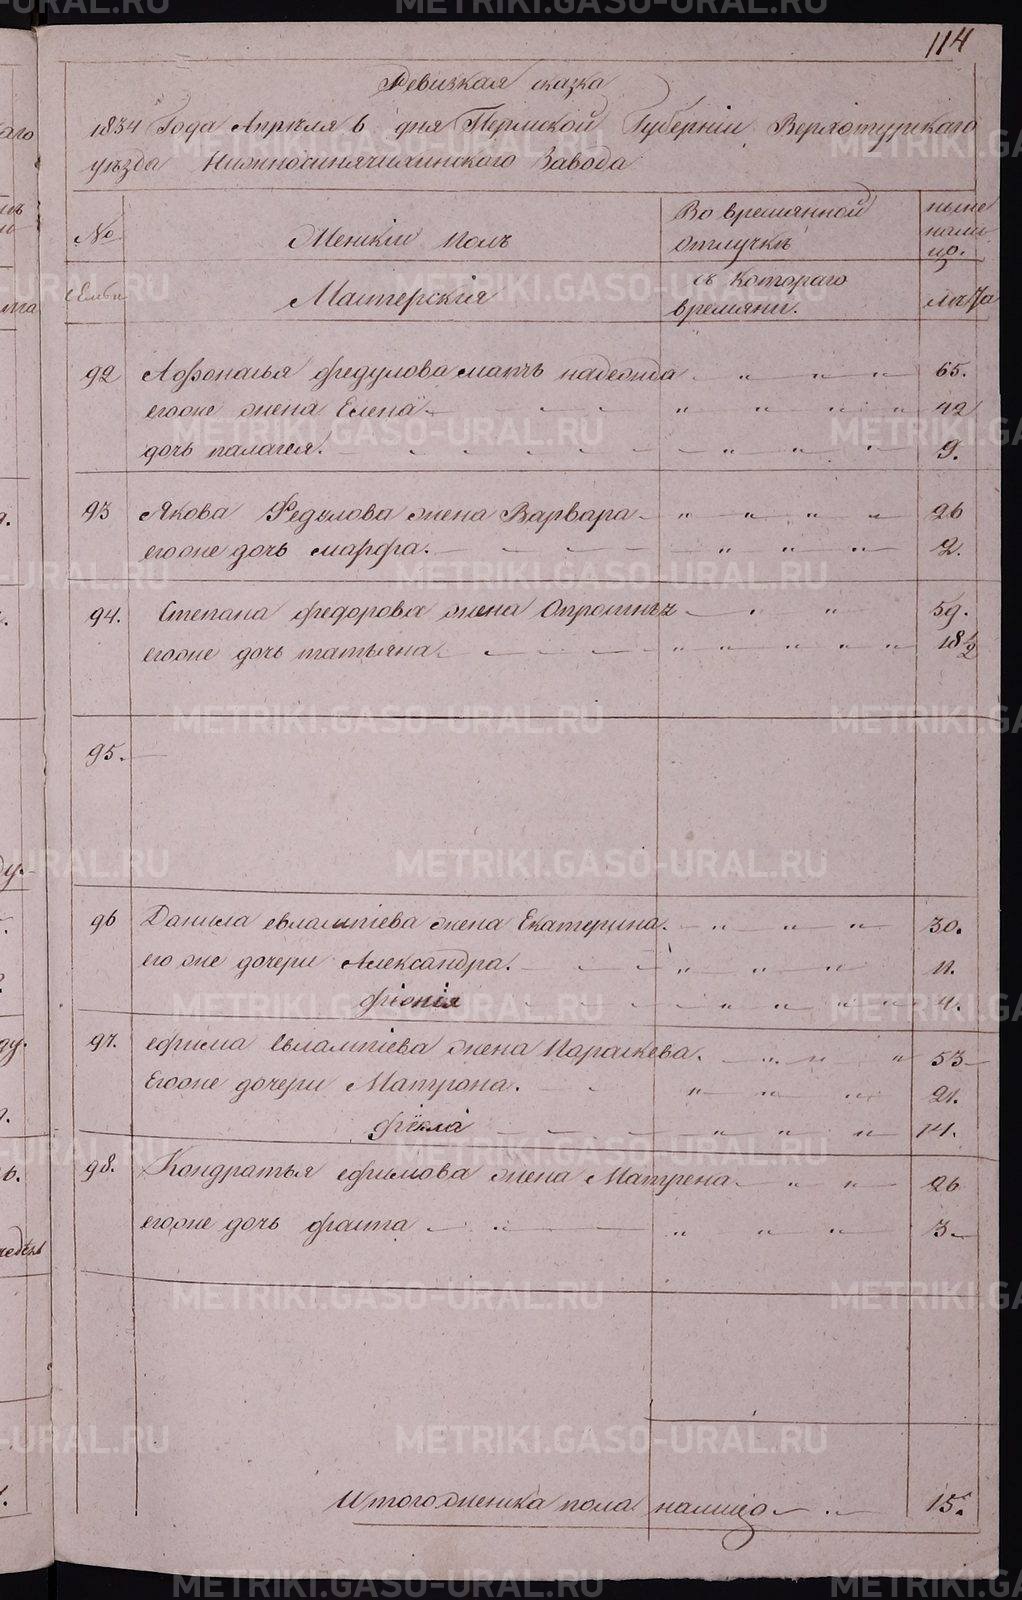 114
Ревизкая сказка
1834 Года Апреля 6 дня Пермской Губернiи Верхотурскаго
уезда Нижносинячихинскаго Завода
№ Женскiй полъ Во времянной отлучкъ ныне нали цо.
Семьи Мастерскiя съ котораго времяни. лѣта
92 Афонасья федулова мать надежда 65.
егоже жена Елена 42
дочь палагея. 9.
93 Якова Федулова жена Варвара 26
егоже дочь марфа. 2.
94. Степана федорова жена 59.
егоже дочь татьяна 18 1/2
95.
96 Данила евлампiева жена Екатерина. 30.
его же дочери Александра. 11.
фiонiя 4.
97. ефима Евлампiева жена Параскева. 53
Егоже дочери Матрона. 21.
фiкла 14.
98. Кондратья ефимова жена Матрена 26
егоже дочь 3
Итого женска пола налицо 15.
METRIKI.GASO-URAL.RU